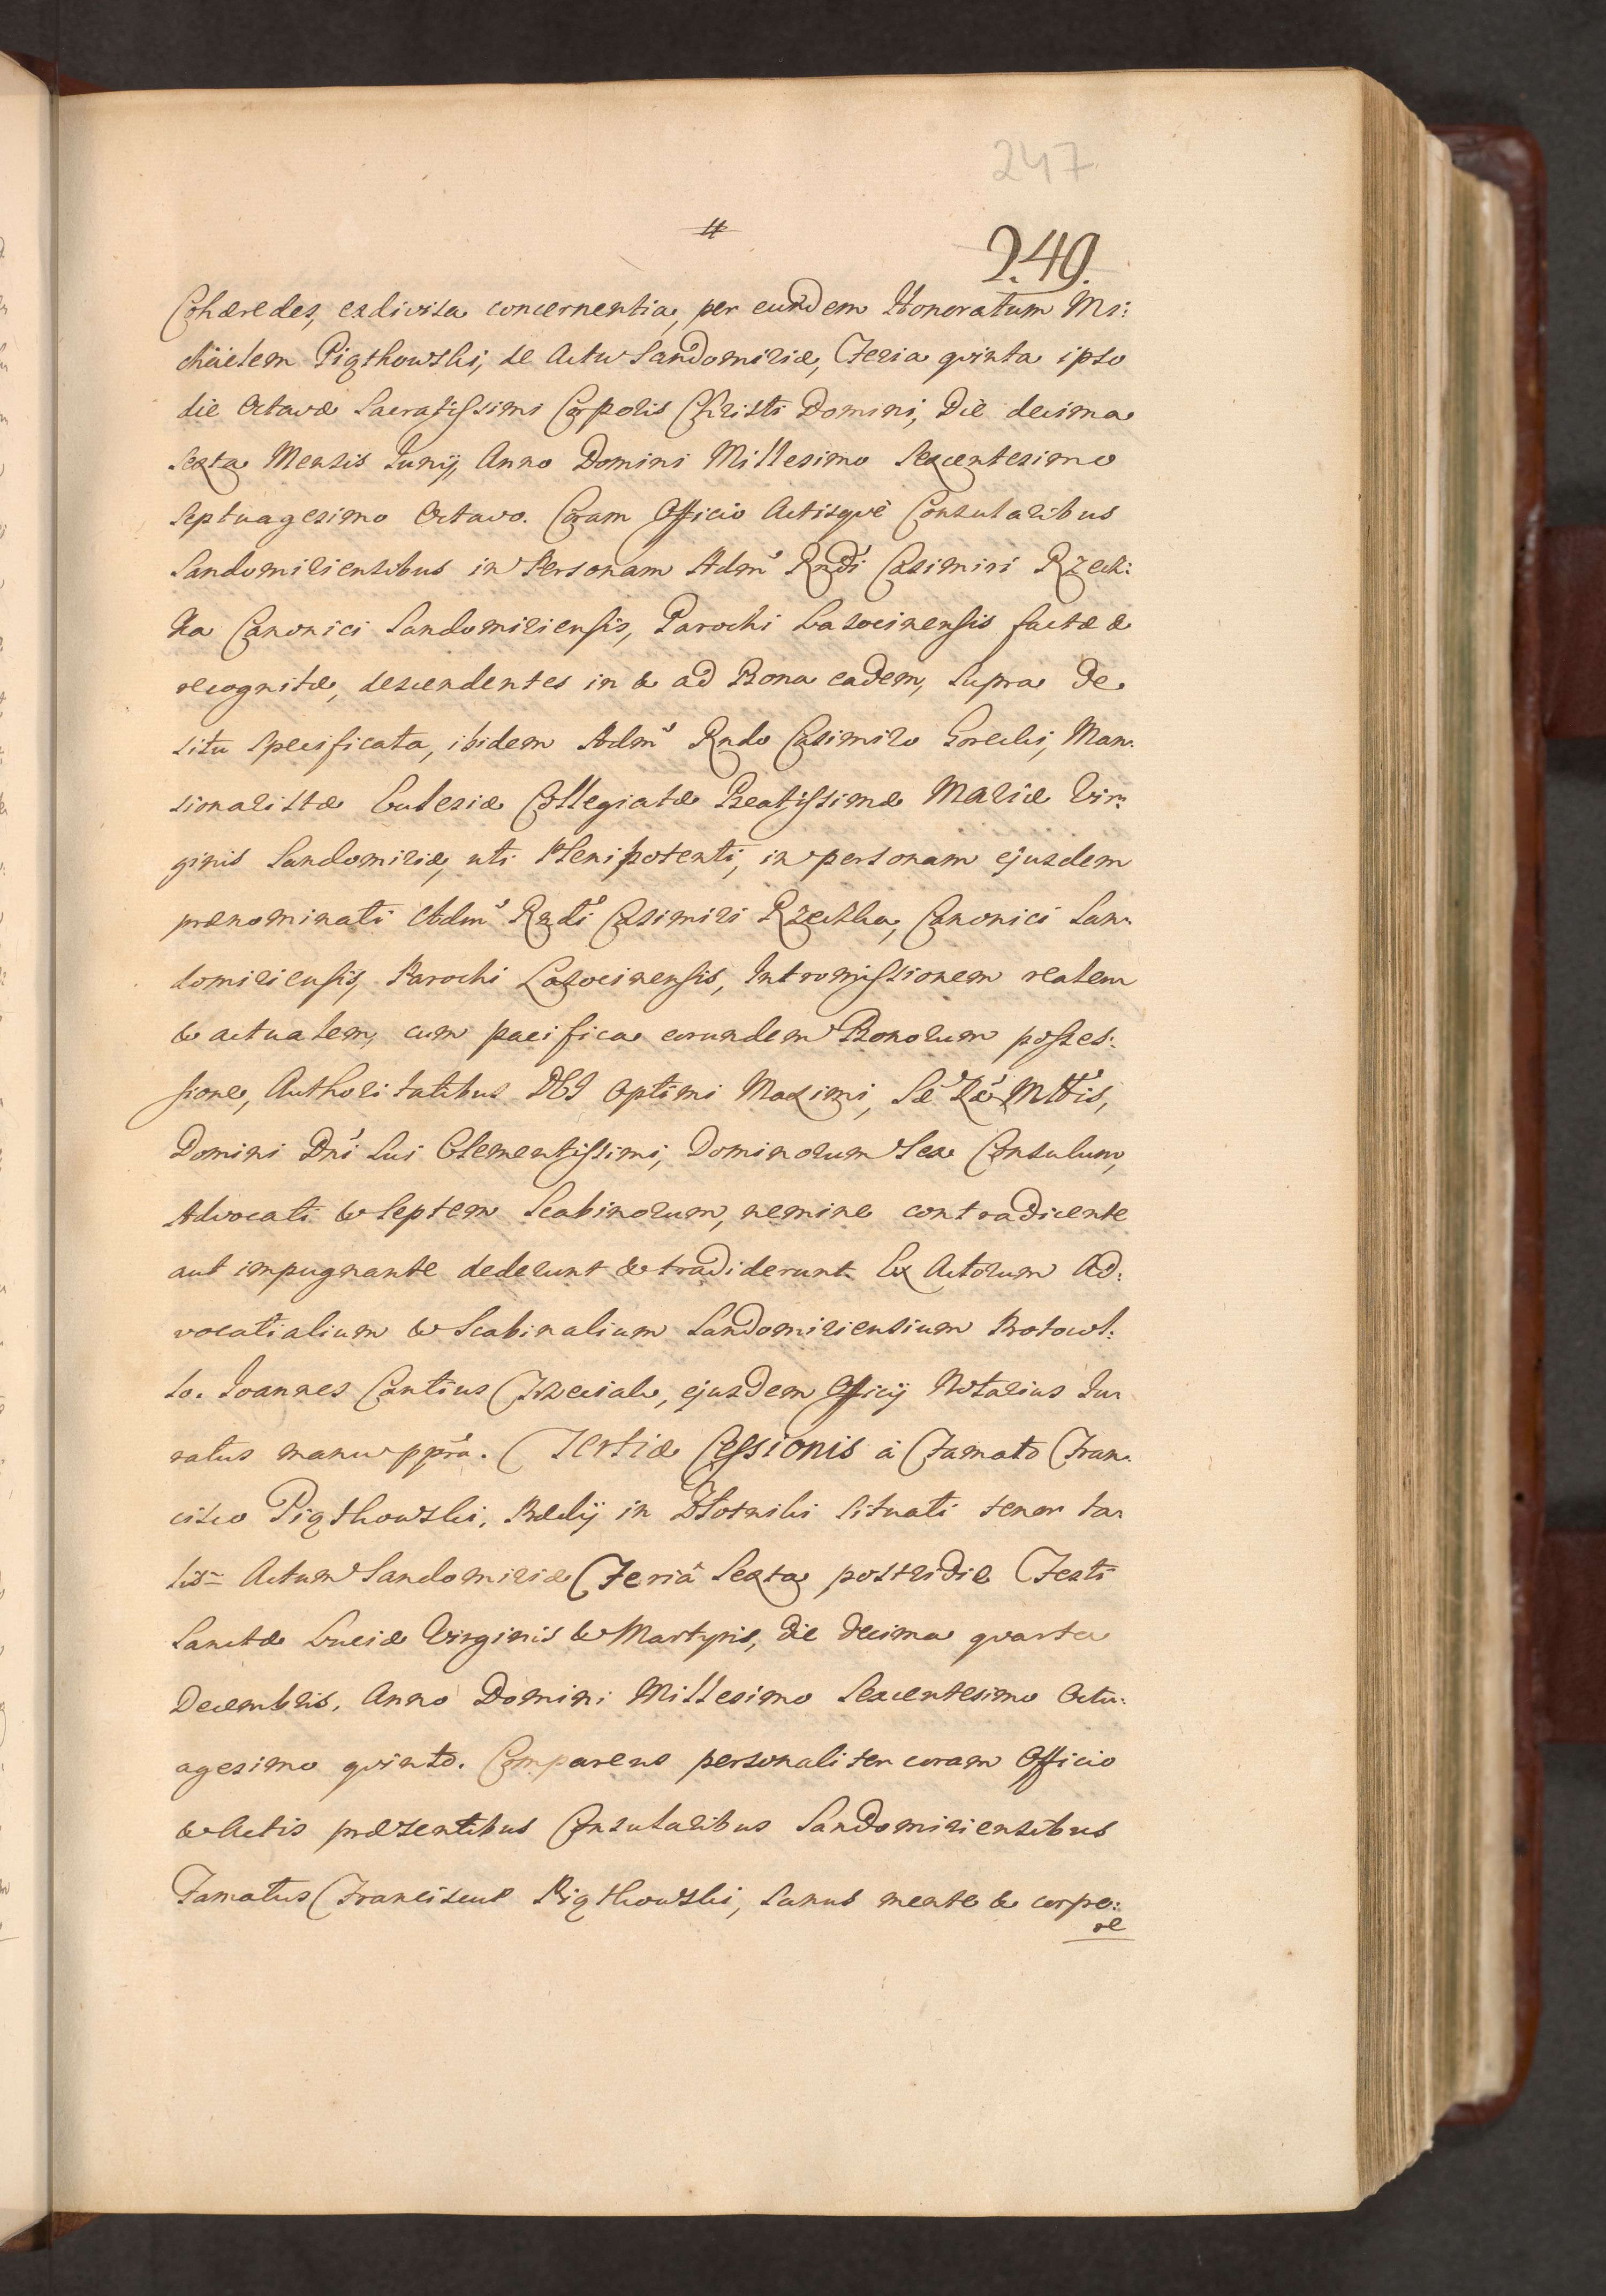 247
#
249.
Cohæredes, exdivisa concernentia, per eundem Honoratum Mi:
chäelem Piątkowski, de Actu Sandomiriæ, Feria qvinta ipso
die Octavæ Sacratissimi Corporis Christi Domini, Die decima
sexta Mensis Junij, Anno Domini Millesimo Sexcentesimo
Septuagesimo Octavo. Coram Officio Actisqvè Consularibus
Sandomiriensibus in Personam Adm' Rndi Casimiri Rzecz:
ka Canonici Sandomiriensis, Parochi Lasocinensis factæ &
recognitæ, descendentes in & ad Bona eadem, supra de
situ specificata, ibidem Adm' Rndo Casimiro Gorecki, Man:
sionaristæ Ecclesiæ Collegiatæ Beatissimæ Mariæ Vir:
ginis Sandomiriæ, uti Plenipotenti, in personam ejusdem
prænominati Adm' Rndi Casimiri Rzeczka, Canonici San:
domiriensis, Parochi Lasocinensis, Intromissionem realem
& actualem, cum pacifica eorundem Bonorum posses:
sione, Authoritatibus DEI Optimi Maximi, Sæ Ræ Mttis,
Domini Dni sui Clementissimi, Dominorum Sex Consulum,
Advocati & Septem Scabinorum, nemine contradicente
aut impugnante dederunt & tradiderunt. Ex Actorum Ad:
vocatialium & Scabinalium Sandomiriensium Protocol:
lo. Joannes Cantius, ejusdem Officij Notarius Ju:
ratus manu ppra. Tertiæ Cessionis à Famato Fran:
cisco Piątkowski, Prædij in Złotniki situati tenor ta:
lis= Actum Sandomiriæ Feriâ Sexta postridie Festi
Sanctæ Luciæ Virginis & Martyris, die decima qvarta
Decembris, Anno Domini Millesimo Sexcentesimo Octu:
agesimo qvinto. Comparens personaliter coram Officio
& Actis præsentibus Consularibus Sandomiriensibus
Famatus Franciscus Piątkowski, sanus mente & corpo:
re